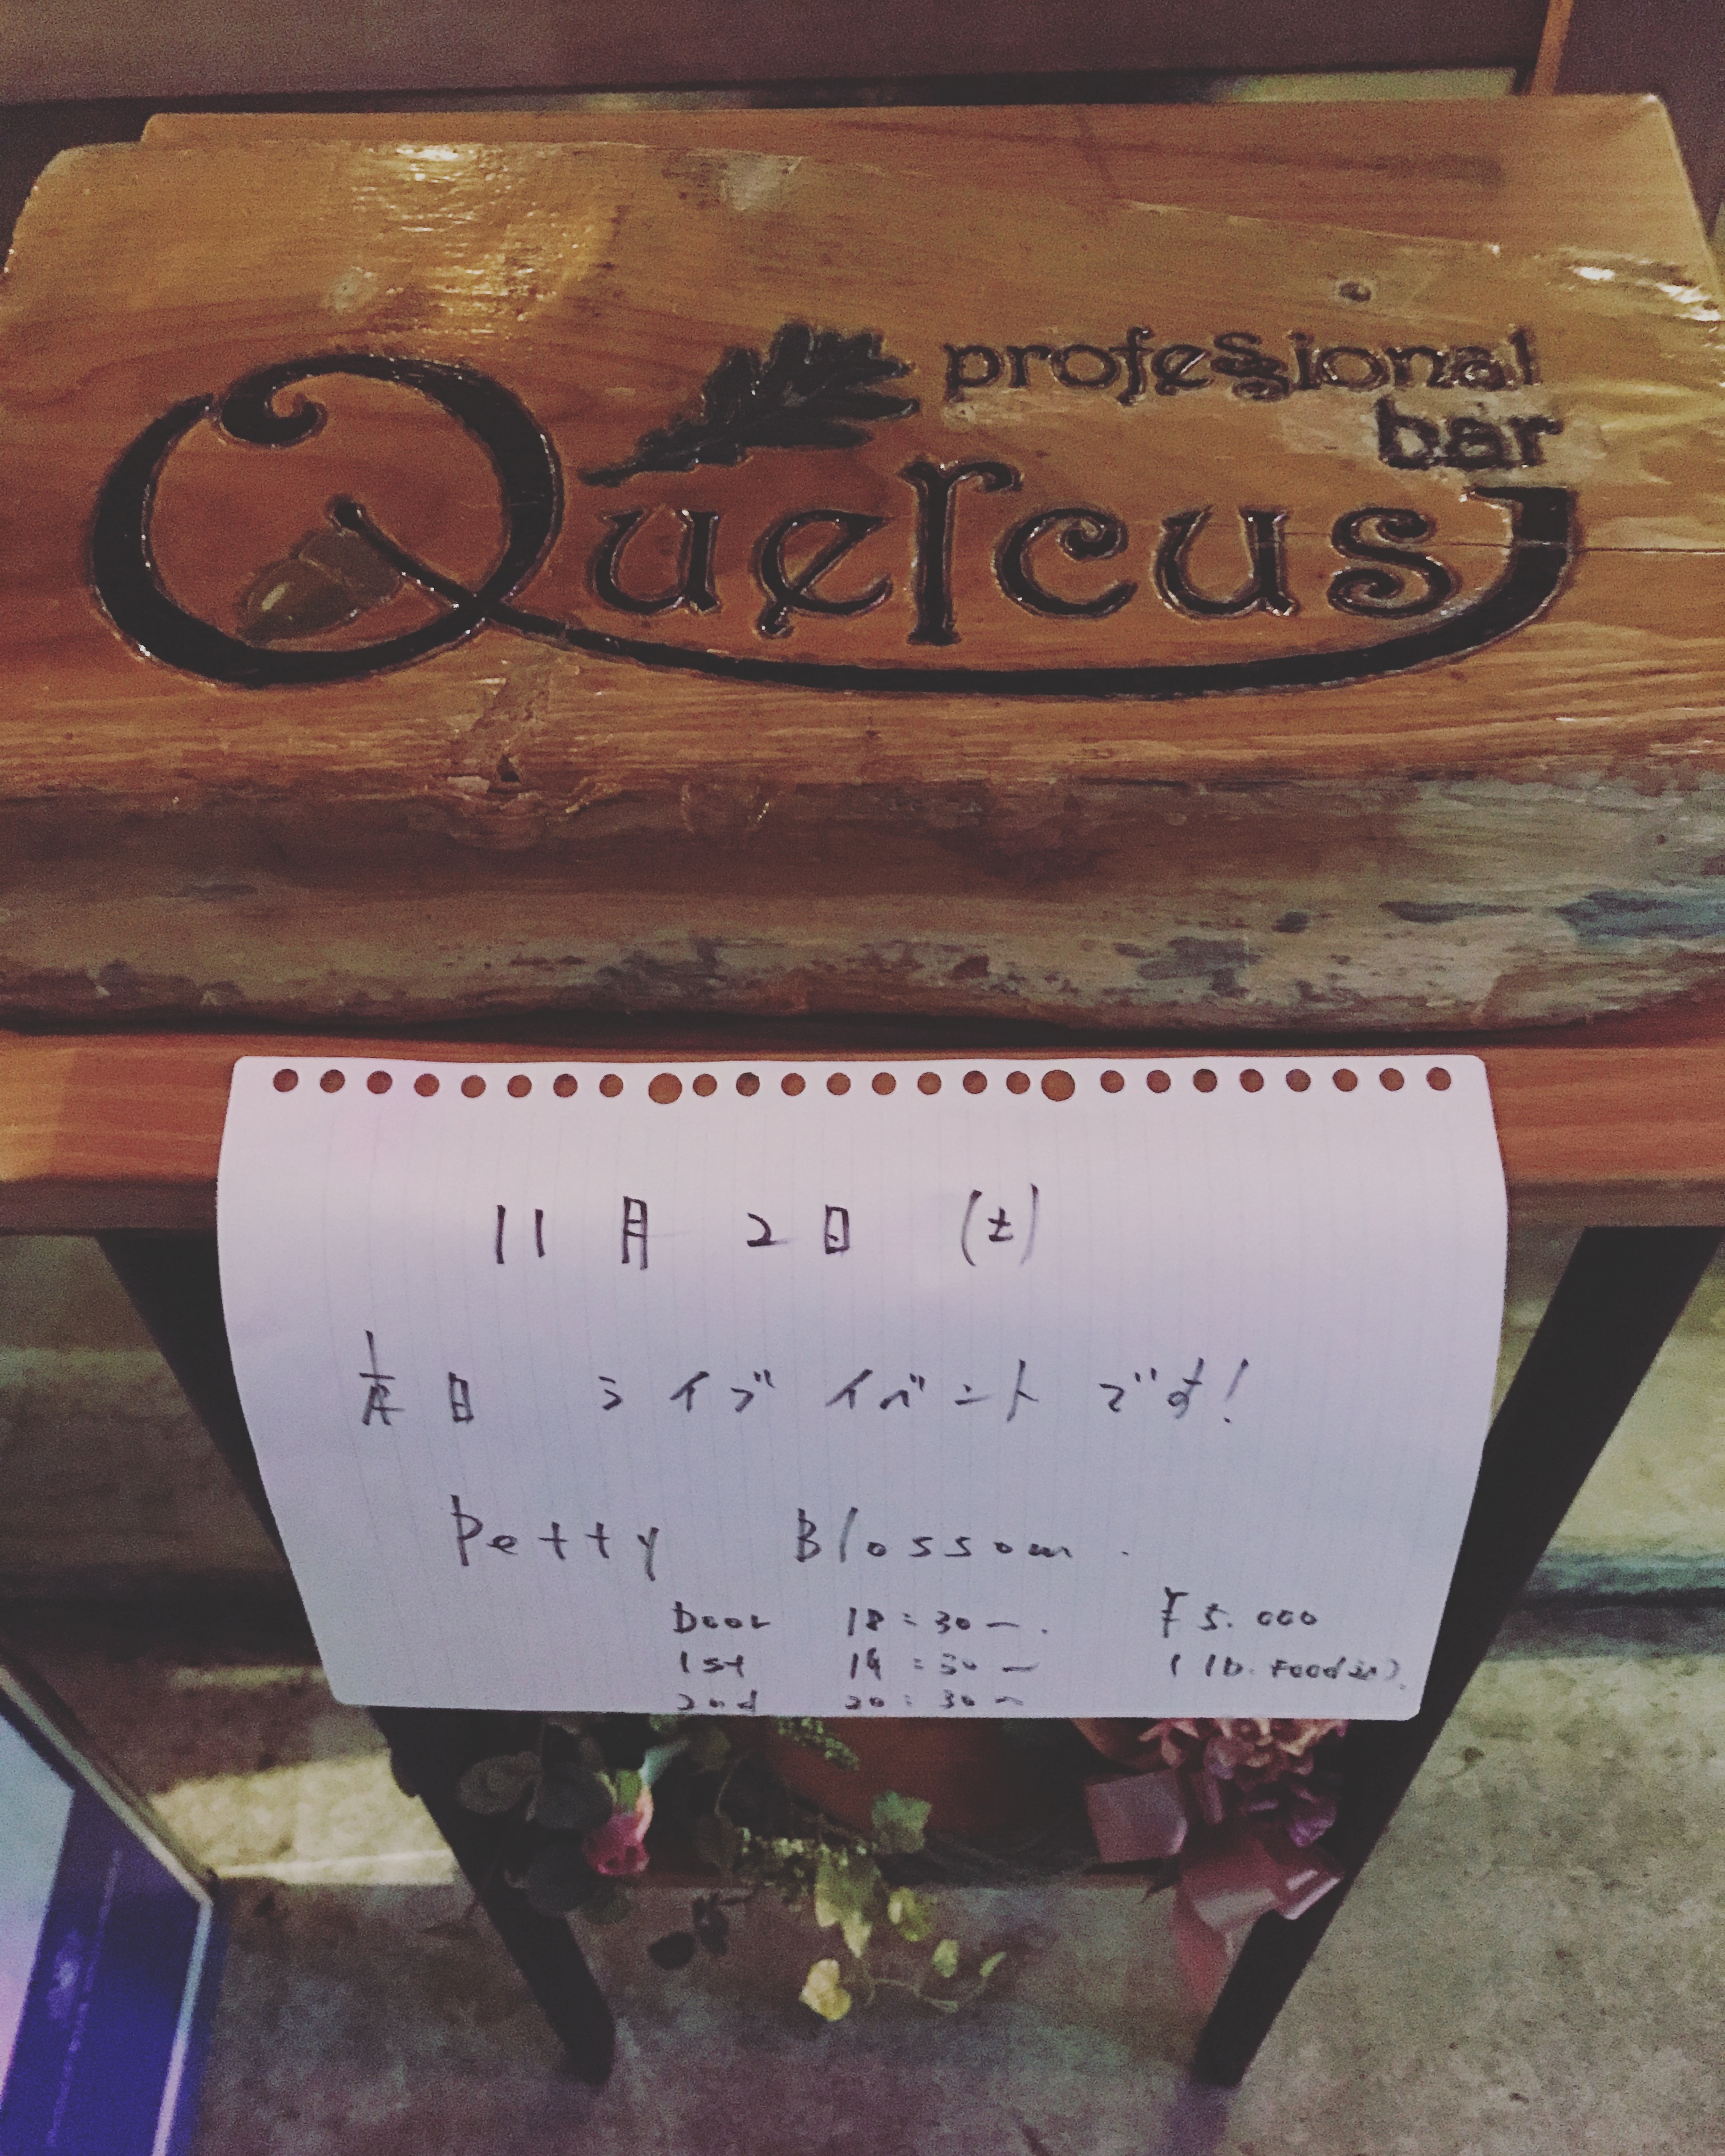 professional
bar
Quercus
11月 2日 (土)
本日 ライブ イベント です!
Petty Blossom.
Door 18:30〜. ¥5.000
1st 19:30〜 (1D. Food in).
2nd 20:30〜